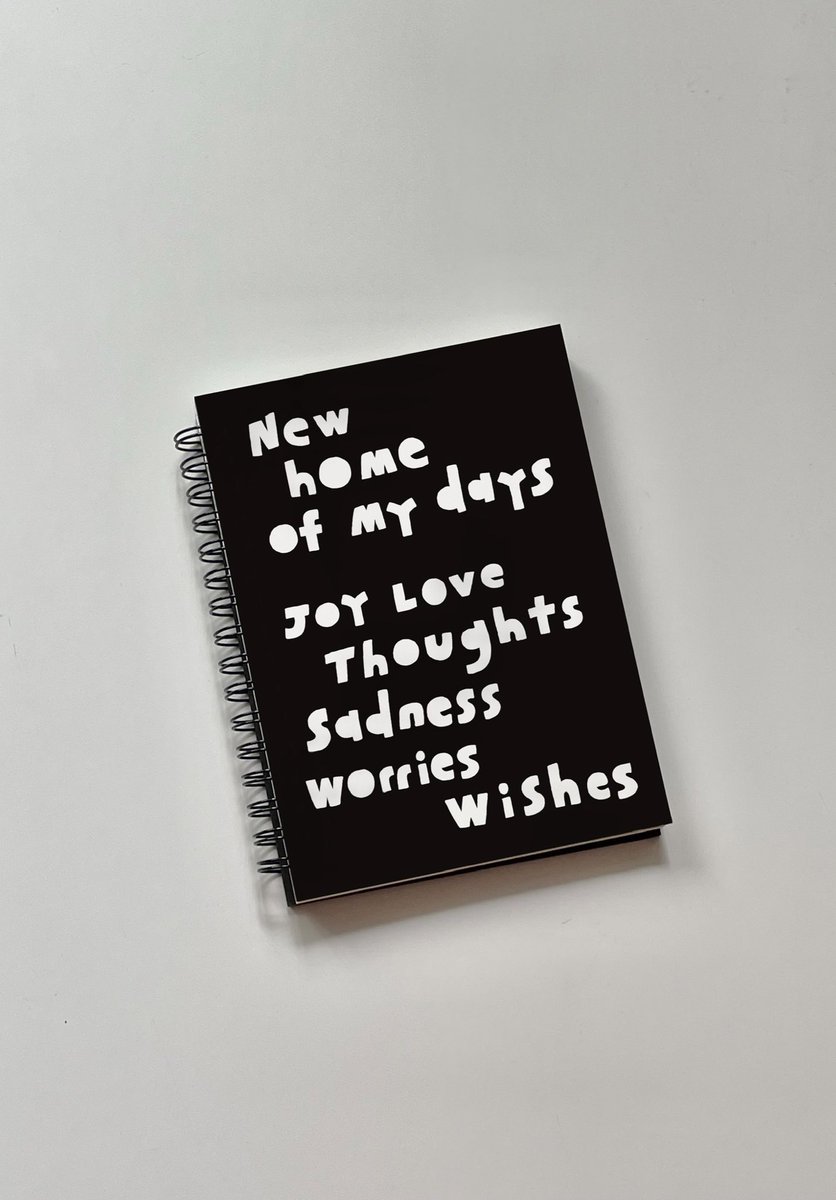 New
home
of my days
Joy Love
Thoughts
Sadness
worries
wishes